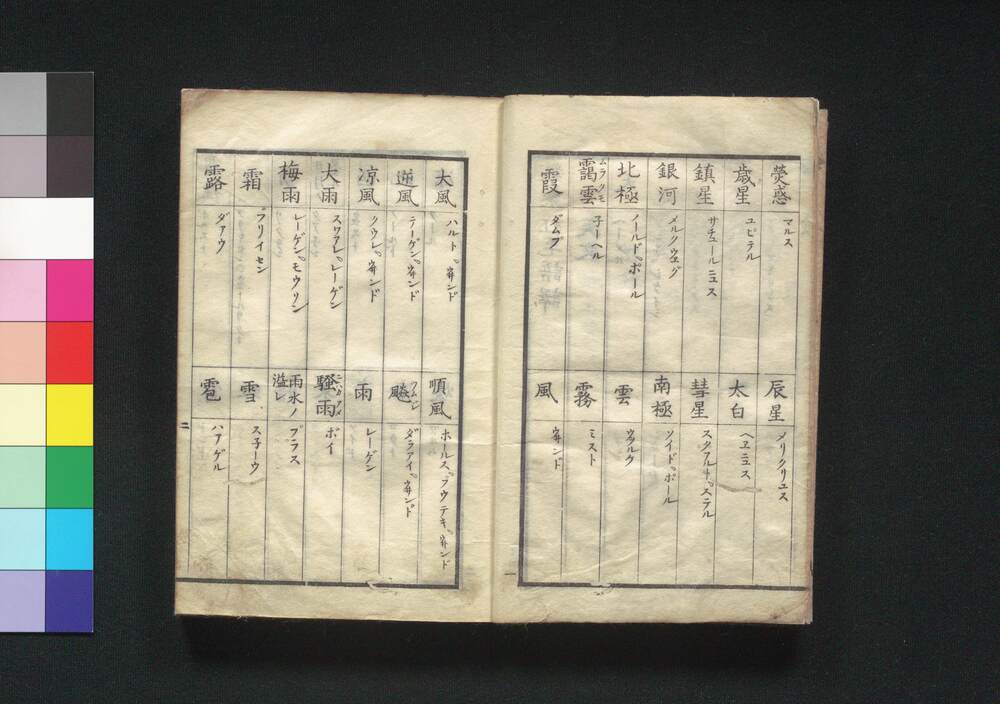 熒惑
マルス
歳星
ユピテル
鎮星
サチュールニュス
銀河
メルクウエグ
北極
ノールド゜ポール
靄雲
ムラクモ
子ーヘル
霞
ダムプ
辰星
メリクリユス
太白
ヘエニュス
彗星
スタアルト゜ステル
南極
ソイド゜ポール
雲
ウヲルク
霧
ミスト
風
ウヰンド
一
大風
ハルト゜ウヰンド
逆風
テーゲン゜ウヰンド
凉風
クウレ゜ウヰンド
大雨
スワアレ゜レーゲン
梅雨
レーゲン゜モウソン
霜
フリイセン
露
ダアウ
順風
ホールス゜ラウテキ゜ウヰンド
飈
ツムジ
ダラアイ゜ウヰンド
雨
レーゲン
驟雨
ニハカアメ
ボイ
雨水ノ
溢レ
プラス
雪
ス子ーウ
雹
ハアゲル
二